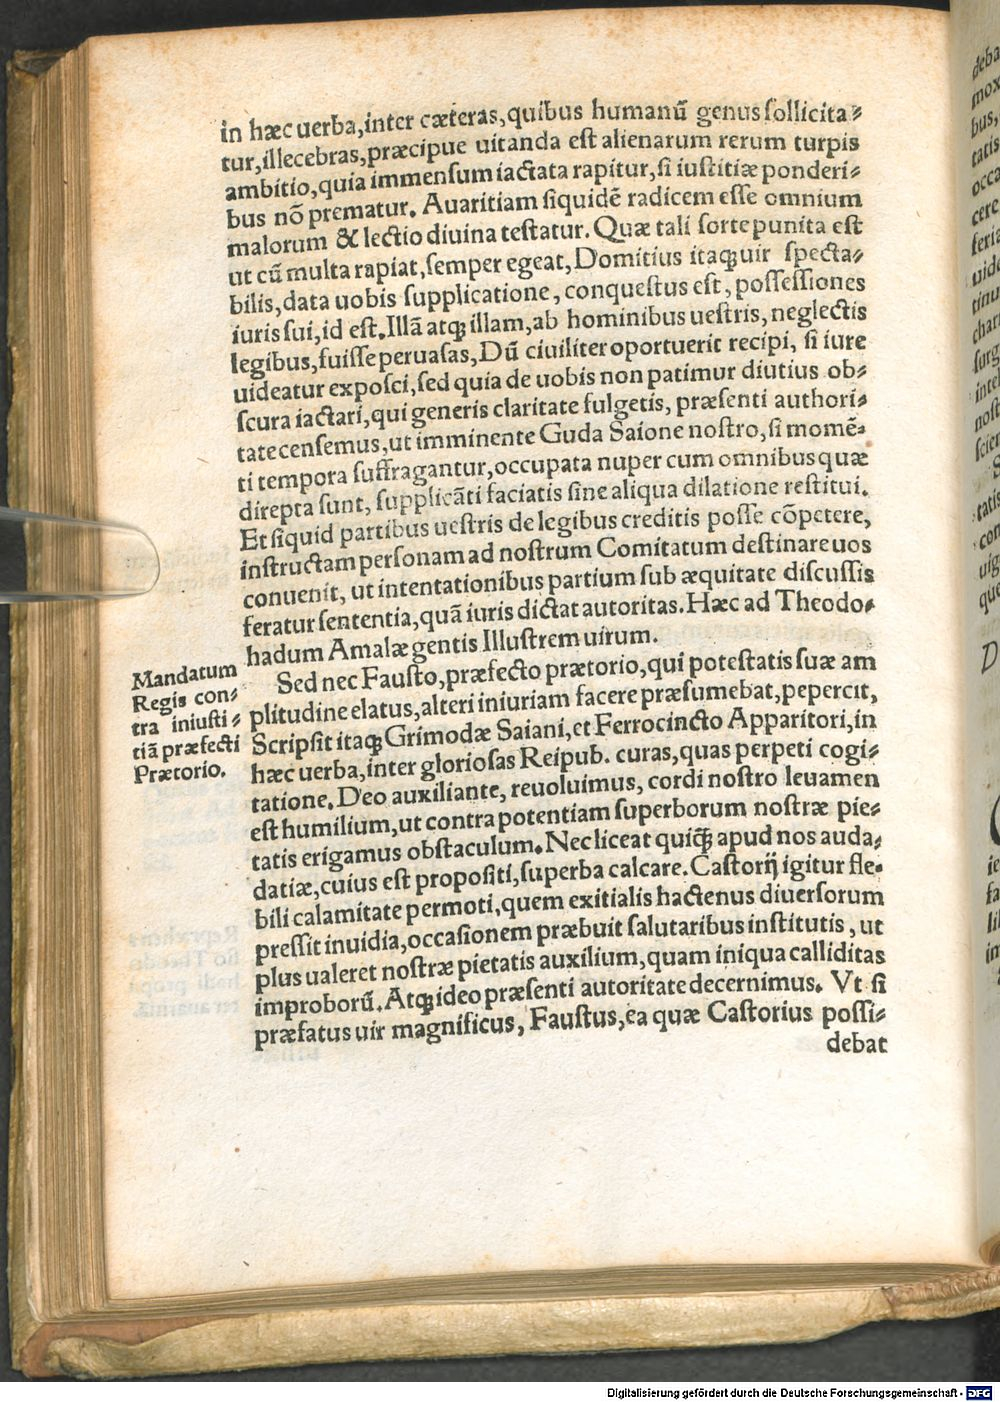 in hæc uerba,inter cæteras,quibus humanũ genus ſollicita⸗
tur,illecebras,præcipue uitanda eſt alienarum rerum turpis
ambitio,quia immenſum iactata rapitur,ſi iuſtitiæ ponderi⸗
bus nõ prematur. Auaritiam ſiquidẽ radicem eſſe omnium
malorum & lectio diuina teſtatur. Quæ tali ſorte punita eſt
ut cũ multa rapiat,ſemper egeat,Domitius itaqꝫ uir ſpecta⸗
bilis,data uobis ſupplicatione,conqueſtus eſt,poſſeſſiones
iuris ſui,id eſt.Illã atqꝫ illam,ab hominibus ueſtris,neglectis
legibus,fuiſſe peruaſas,Dũ ciuiliter oportuerit recipi, ſi iure
uideatur expoſci,ſed quia de uobis non patimur diutius ob⸗
ſcura iactari,qui generis claritate fulgetis, præſenti authori⸗
tate cenſemus,ut imminente Guda Saione noſtro,ſi momẽ⸗
ti tempora ſuffragantur,occupata nuper cum omnibus quæ
direpta ſunt, ſupplicãti faciatis ſine aliqua dilatione reſtitui.
Et ſiquid partibus ueſtris de legibus creditis poſſe cõpetere,
inſtructam perſonam ad noſtrum Comitatum deſtinare uos
conuenit, ut intentationibus partium ſub æquitate diſcuſſis
feratur ſententia,quã iuris dictat autoritas. Hæc ad Theodo⸗
hadum Amalæ gentis Illuſtrem uirum.
Mandatum
Regis con⸗
tra iniuſti⸗
tiã præfecti
Prætorio.
Sed nec Fauſto,præfecto prætorio,qui poteſtatis ſuæ am
plitudine elatus,alteri iniuriam facere præſumebat,pepercit,
Scripſit itaqꝫ Grimodæ Saiani,et Ferrocincto Apparitori,in
hæc uerba,inter glorioſas Reipub. curas,quas perpeti cogi⸗
tatione.Deo auxiliante, reuoluimus, cordi noſtro leuamen
eſt humilium,ut contra potentiam ſuperborum noſtræ pie⸗
tatis erigamus obſtaculum. Nec liceat quicꝗ̃ apud nos auda⸗
datiæ,cuius eſt propoſiti,ſuperba calcare. Caſtorij igitur fle⸗
bili calamitate permoti,quem exitialis hactenus diuerſorum
preſſit inuidia,occaſionem præbuit ſalutaribus inſtitutis, ut
plus ualeret noſtræ pietatis auxilium,quam iniqua calliditas
improborũ.Atqꝫ ideo præſenti autoritate decernimus. Vt ſi
præfatus uir magnificus, Fauſtus,ea quæ Caſtorius poſſi⸗
debat
Digitalisierung gefördert durch die Deutsche Forschungsgemeinschaft - DFG